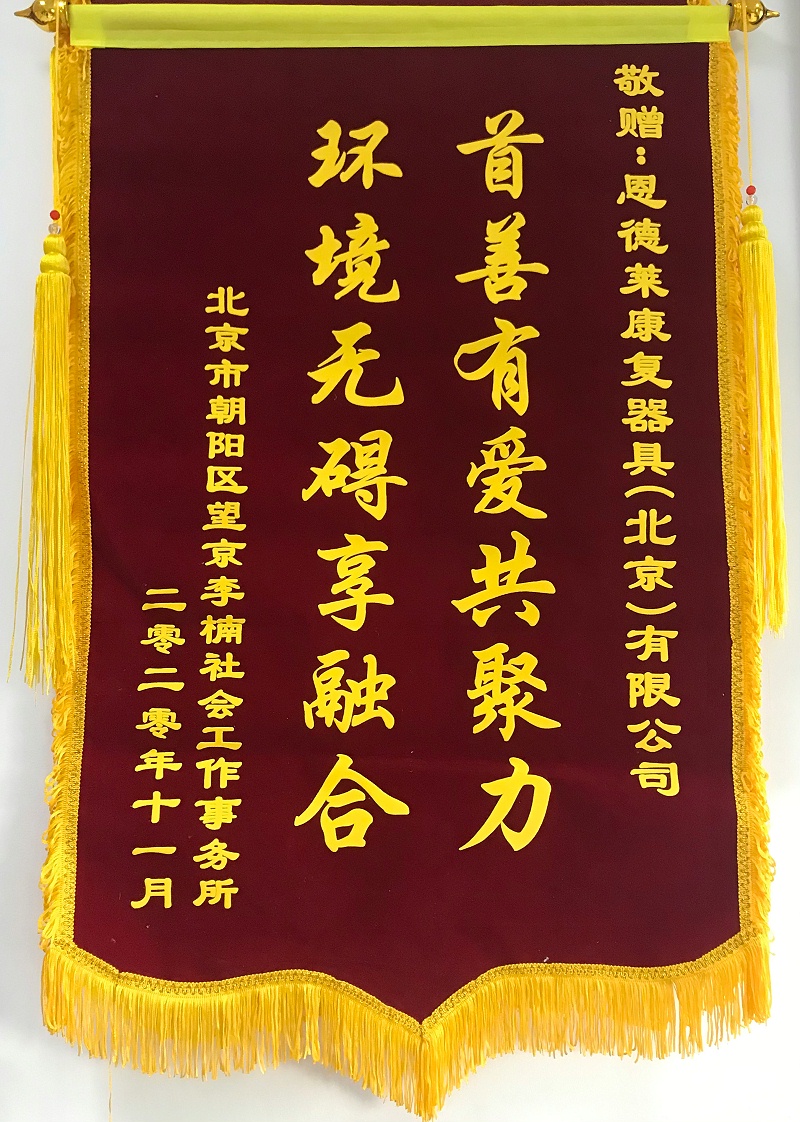 敬赠：恩德莱康复器具（北京）有限公司
首善有爱共聚力
环境无碍享融合
北京市朝阳区望京李楠社会工作事务所
二零二零年十一月